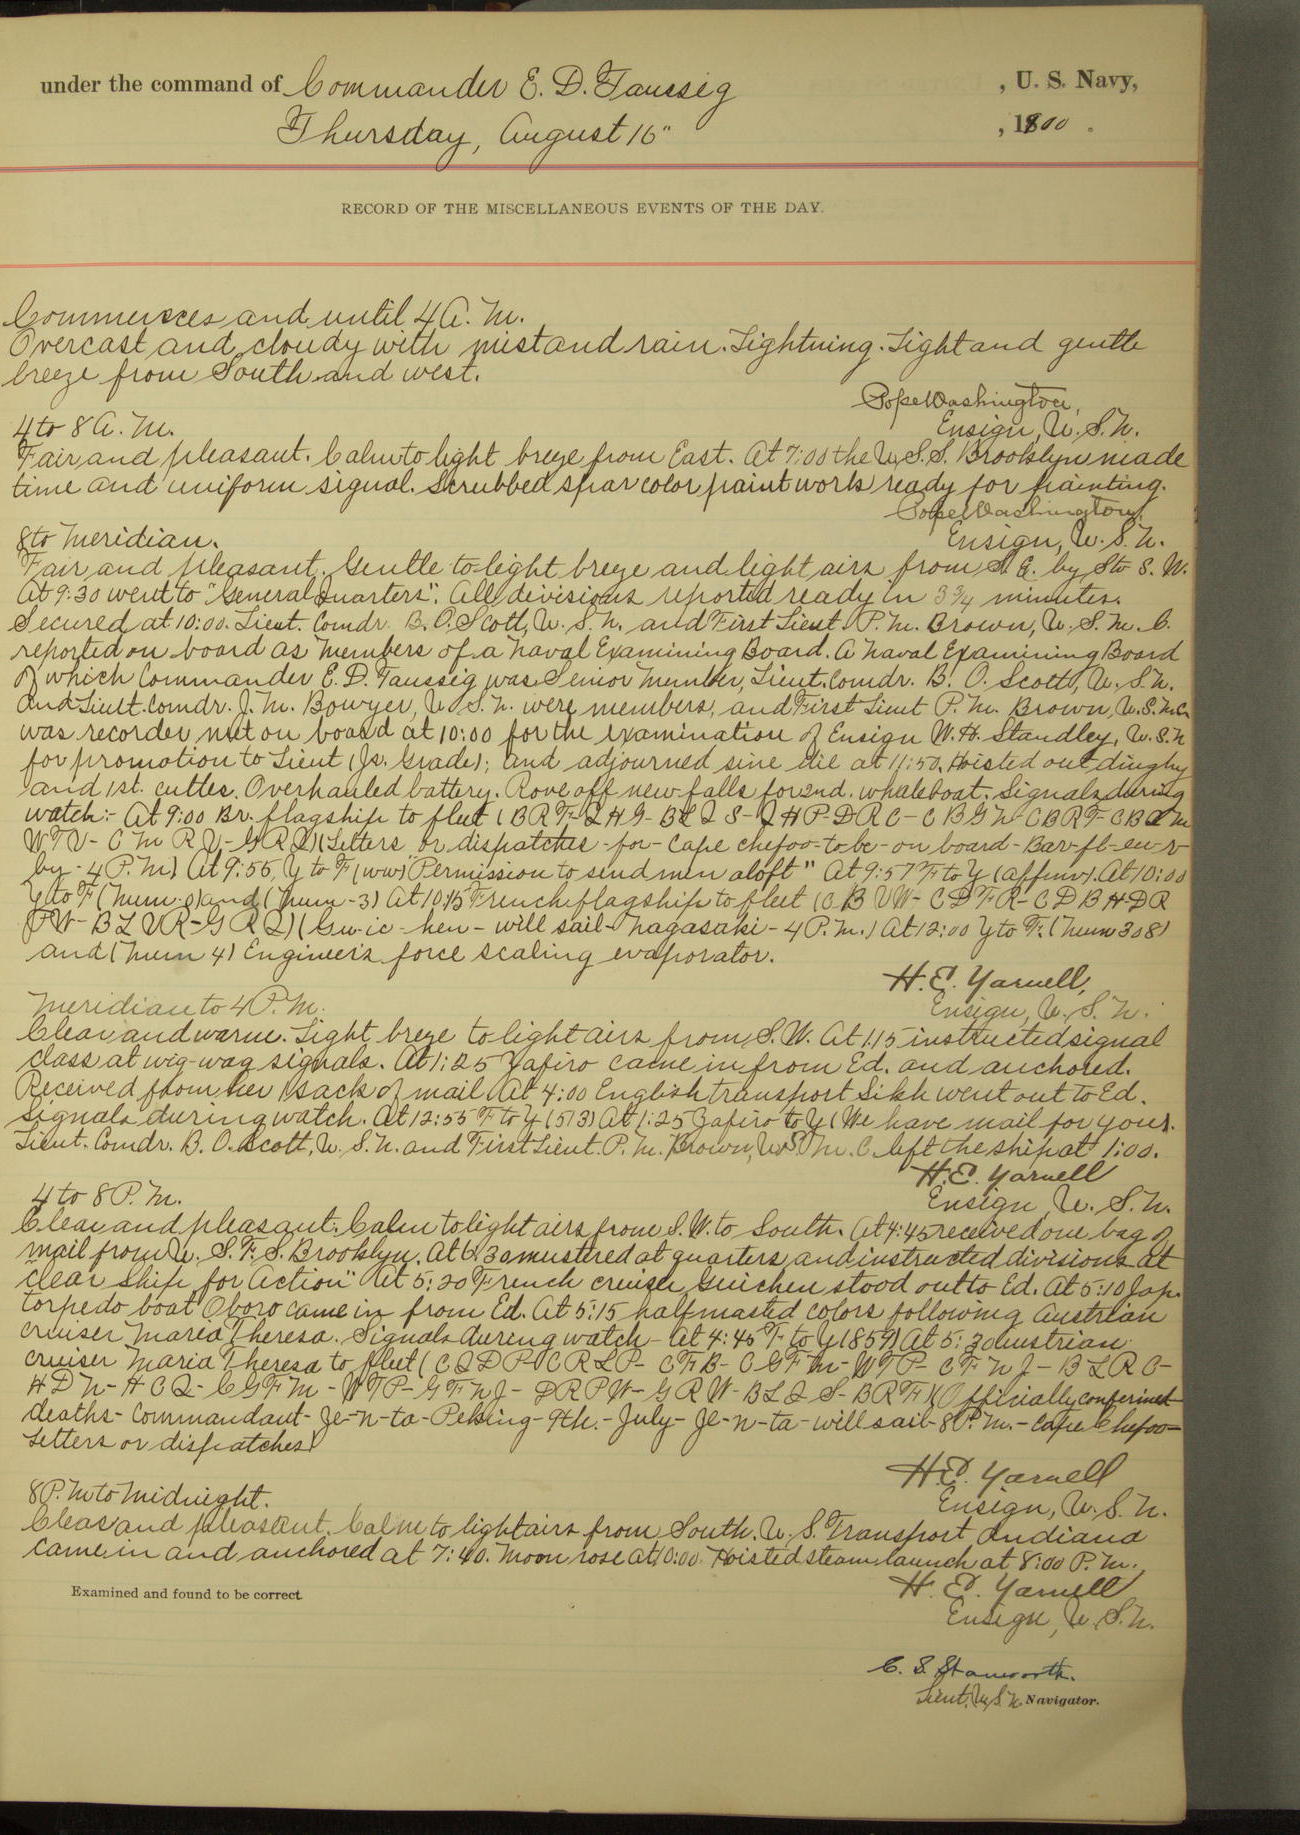 under the command of Commander E. D. Taussig , U. S. Navy,
Thursday, August 16" , 1900 .
RECORD OF THE MISCELLANEOUS EVENTS OF THE DAY.
Commences and until 4 A. M.
Overcast and cloudy with mist and rain. Lightning. Light and gentle
breeze from South and west.
Pope Washington,
4 to 8 A. M.
Ensign, U. S. N.
Fair and pleasant. Calm to light breeze from East. At 7:00 the U. S. S. Brooklyn made
time and uniform signal. Scrubbed spar color paint work ready for painting.
Pope Washington,
8 to Meridian.
Ensign, U. S. N.
Fair and pleasant. Gentle to light breeze and light airs from S. E. by S to S. W.
At 9:30 went to "General Quarters". All divisions reported ready in 3 3/4 minutes.
Secured at 10:00. Lieut. Comdr. B. O. Scott, U. S. N. and First Lieut. P. M. Brown, U. S. M. C.
reported on board as members of a Naval Examining Board. A Naval Examining Board
of which Commander E. D. Taussig was Senior Member, Lieut. Comdr. B. O. Scott, U. S. N.
and Lieut. Comdr. J. M. Bowyer, U. S. N. were members, and First Lieut P. M. Brown, U. S. M. C.
was recorder met on board at 10:00 for the examination of Ensign W. H. Standley, U. S. N
for promotion to Lieut (Jr. Grade); and adjourned sine die at 11:50. Hoisted out dinghy
and 1st. cutter. Overhauled battery. Rove off new falls for 2nd. whaleboat. Signals during
watch:- At 9:00 Br. flagship to fleet (BRF-QHG-BLQS-QHP-DRC-CBGN-CBRF-CBQM
WTV-CMRV-GRQ) (Letters or dispatches-for-Cape chefoo-to-be-on board-Bar-fl-eu-r
by-4 P. M) At 9:55, Y to F (ww) "Permission to send men aloft" At 9:57 F to Y (affirm). At 10:00
Y to F (Num-0) and (Num-3) At 10:15 French flagship to fleet (CBVW-CDFR-CDBH-DR
PW-BLVR-GRQ) (Gu-ic-hen-will sail-Nagasaki-4 P. M.) At 12:00 Y to F. (Num 308)
and (Num 4) Engineer's force scaling evaporator.
H. E. Yarnell,
Meridian to 4 P. M.
Ensign, U. S. N.
Clear and warm. Light breeze to light airs from S. W. At 1:15 instructed signal
class at wig-wag signals. At 1:25 Zafiro came in from Ed. and anchored.
Received from her 1 sack of mail. At 4:00 English transport Sikh went out to Ed.
Signals during watch. At 12:55 F to Y (513) At 1:25 Zafiro to Y (We have mail for you).
Lieut. Comdr. B. O. Scott, U. S. N. and First Lieut. P. M. Brown, U. S. M. C. left the ship at 1:00.
H. E. Yarnell
4 to 8 P. M.
Ensign, U. S. N.
Clear and pleasant. Calm to light airs from S. W. to South. At 4:45 received one bag of
mail from U. S. F. S. Brooklyn. At 6:30 mustered at quarters and instructed divisions at
"clear Ship for Action" At 5:20 French cruiser Guichen stood out to Ed. At 5:10 Jap.
torpedo boat Oboro came in from Ed. At 5:15 half masted colors following Austrian
cruiser Maria Theresa. Signals during watch- At 4:45 F to Y (859) At 5:30 Austrian
cruiser Maria Theresa to fleet (CQDP-CRLP-CFB-CGFM-WTP-CFNJ-BLRC-
HDN-HCQ-CGFM-WTP-GFNJ-DRPW-GRW-BLQS-BRF) (Officially confirmed
deaths-Commandant-Ze-n-ta-Peking-9th.-July-Ze-n-ta-will sail-8 P. M.-Cape Chefoo-
Letters or dispatches)
H. E. Yarnell
8 P. M to Midnight.
Ensign, U. S. N.
Clear and pleasant. Calm to light airs from South. U. S. Transport Indiana
came in and anchored at 7:40. Moon rose at 10:00. Hoisted steam launch at 8:00 P. M.
H. E. Yarnell
Examined and found to be correct.
Ensign, U. S. N.
C. S. Stanworth.
Lieut, U. S. N. Navigator.